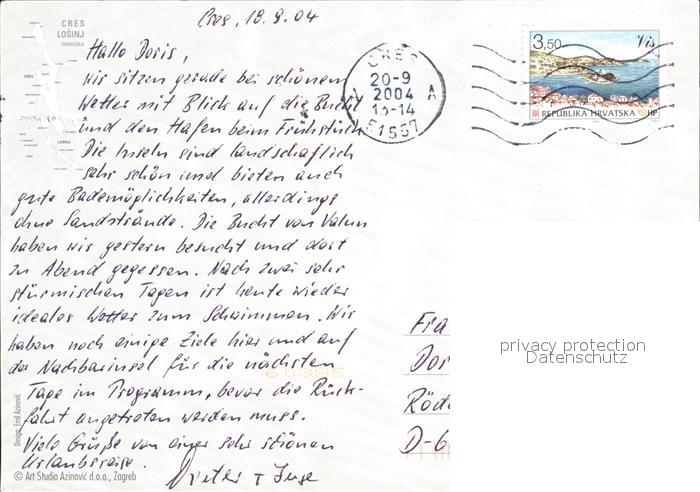 CRES
LOŠINJ
HRVATSKA
Cres, 18.9.04
Hallo Doris,
wir sitzen gerade bei schönem
Wetter mit Blick auf die Bucht
und den Hafen beim Frühstück
Die Inseln sind landschaftlich
sehr schön und bieten auch
gute Bademöglichkeiten, allerdings
ohne Sandstrände. Die Bucht von Valun
haben wir gestern besucht und dort
zu Abend gegessen. Nach zwei sehr
stürmischen Tagen ist heute wieder
ideales Wetter zum Schwimmen. Wir
haben noch einige Ziele hier und auf
der Nachbarinsel für die nächsten
Tage im Programm, bevor die Rück-
fahrt angetreten werden muss.
Viele Grüße von einer sehr schönen
Urlaubsreise.
Dieter + Inge
CRES
20-9
2004
13-14
51557
A
3,50
Vis
REPUBLIKA HRVATSKA HP
Fra
Dor
Röde
D-6
privacy protection
Datenschutz
Design: Emil Azinović
© Art Studio Azinović d.o.o., Zagreb